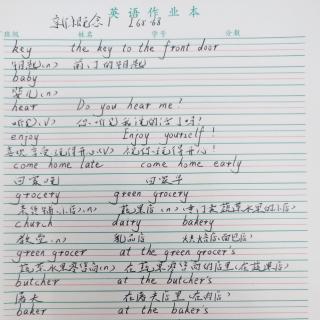 英语作业本
新概念1 L65-68
班级 姓名 学号 分数
key the key to the front door
钥匙(n) 前门的钥匙
baby
婴儿(n)
hear Do you hear me?
听见(v) 你听见我说的话了吗?
enjoy Enjoy yourself!
玩得开心(v) 祝你玩得开心!
come home late come home early
回家晚 回家早
grocery green grocery
杂货铺,小店(n) 蔬果店(n)
church dairy bakery
教堂(n) 乳品店 烘焙店,面包店
green grocer at the green grocer's
蔬菜水果零售商(n) 在蔬菜零售商的店里(在蔬菜店)
butcher at the butcher's
屠夫 在屠夫店里
baker at the baker's